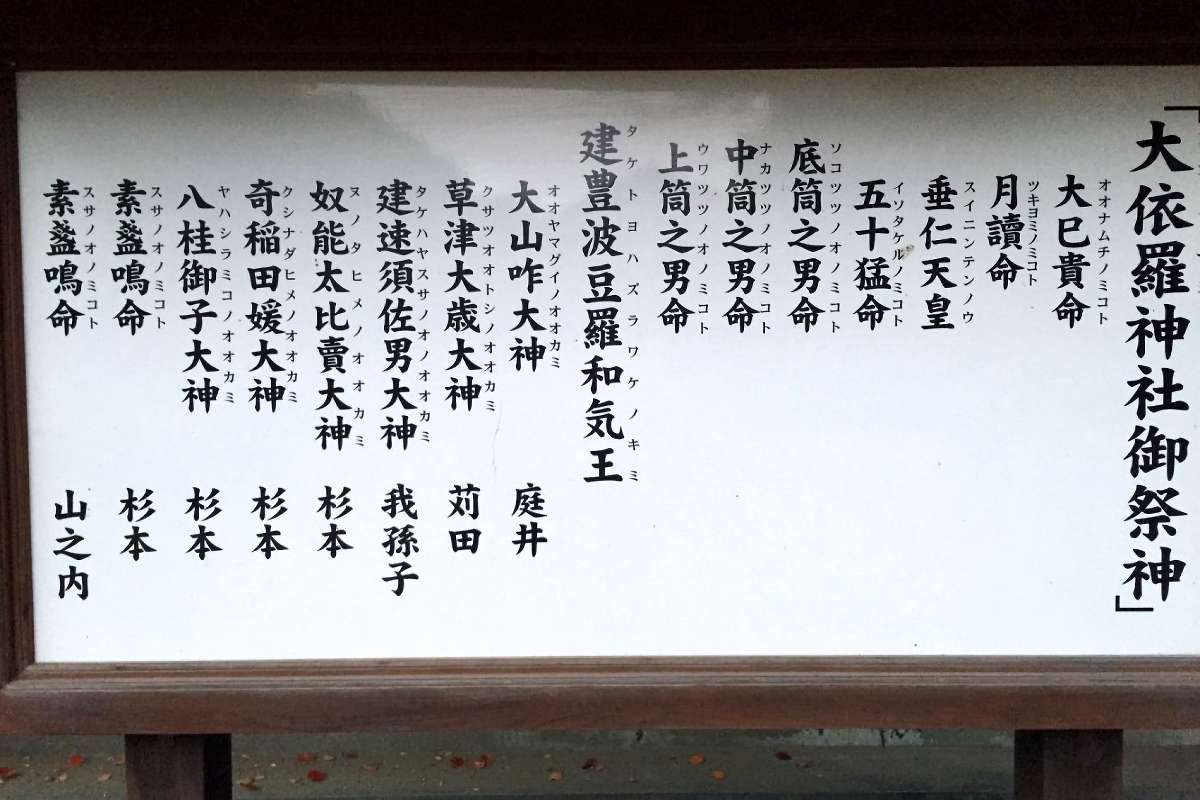 「大依羅神社御祭神」
大巳貴命 オオナムチノミコト
月讀命 ツキヨミノミコト
垂仁天皇 スイニンテンノウ
五十猛命 イソタケルノミコト
底筒之男命 ソコツツノオノミコト
中筒之男命 ナカツツノオノミコト
上筒之男命 ウワツツノオノミコト
建豊波豆羅和気王 タケトヨハズラワケノキミ
大山咋大神 オオヤマグイノオオカミ 庭井
草津大歳大神 クサツオオトシノオオカミ 苅田
建速須佐男大神 タケハヤスサノオノオオカミ 我孫子
奴能太比賣大神 ヌノタヒメノオオカミ 杉本
奇稲田媛大神 クシナダヒメノオオカミ 杉本
八桂御子大神 ヤハシラミコノオオカミ 杉本
素盞鳴命 スサノオノミコト 杉本
素盞鳴命 スサノオノミコト 山之内